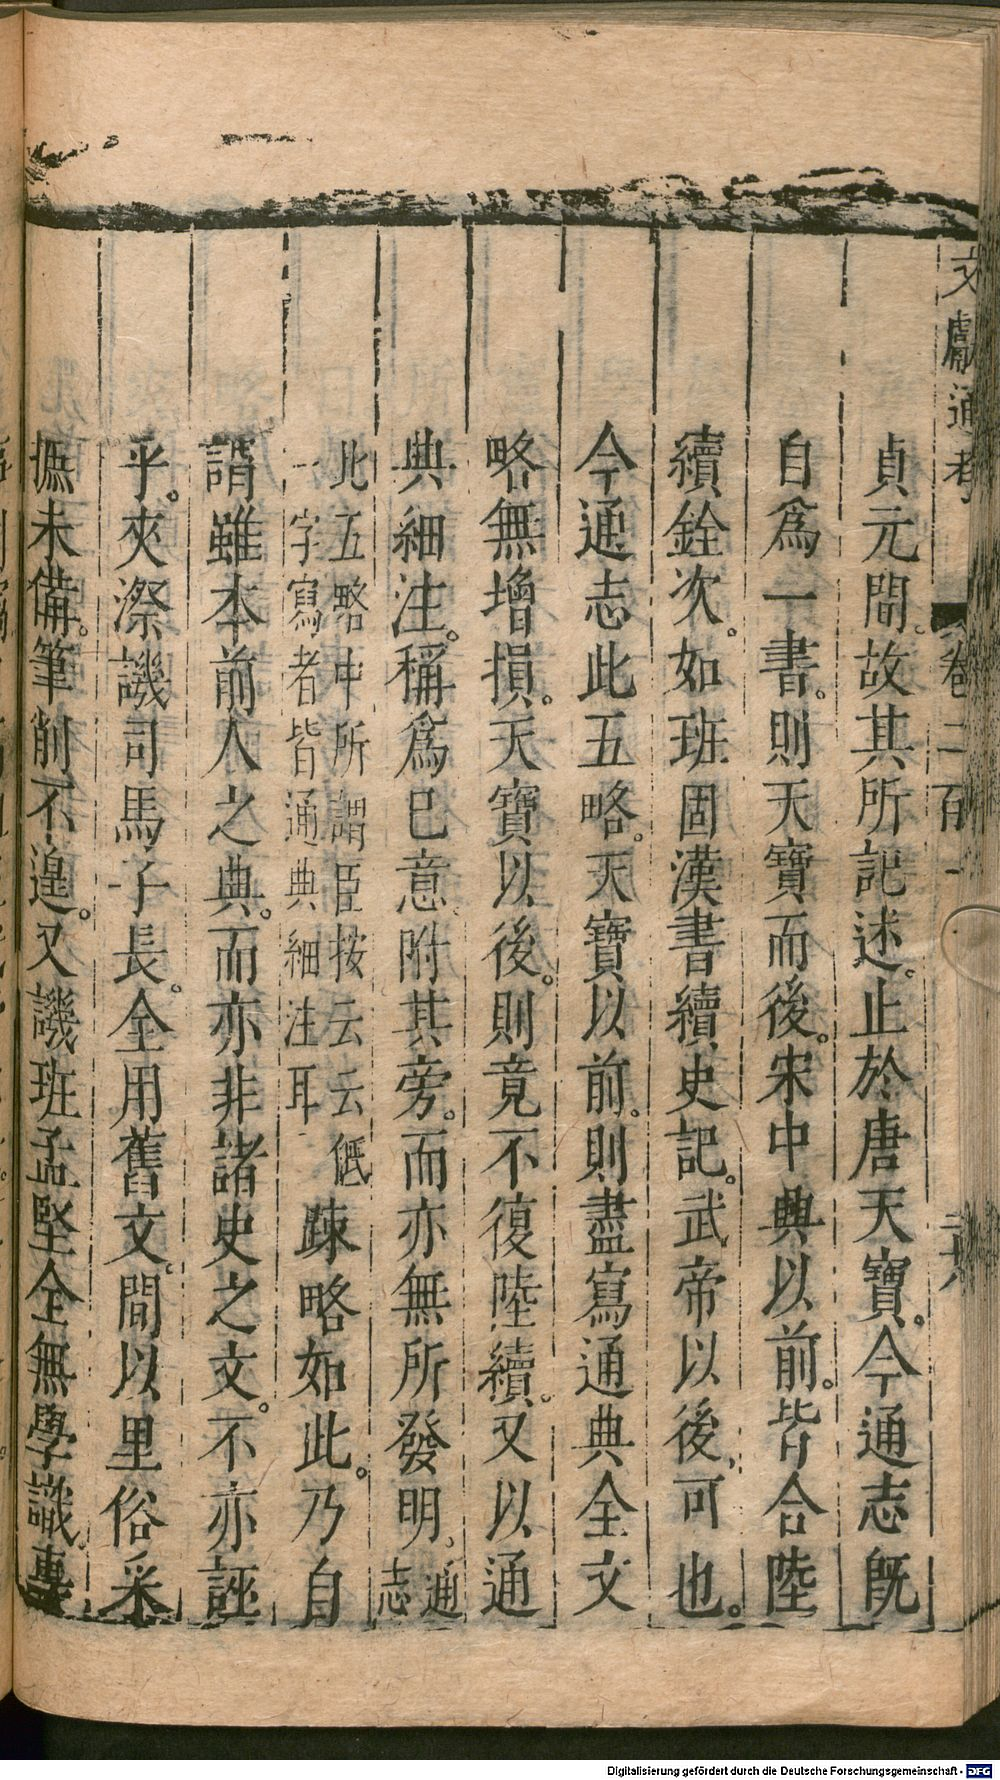 文獻通考 卷二百一
貞元間。故其所記述。止於唐天寶。今通志既
自爲一書。則天寶而後。宋中興以前。皆合陸
續銓次。如班固漢書續史記。武帝以後。可也。
今通志此五略。天寶以前。則盡寫通典全文
略無增損。天寶以後。則竟不復陸續。又以通
典細注。稱爲已意。附其旁。而亦無所發明。通志
此五略中所謂臣按云云低一字寫者皆通典細注耳疎略如此。乃自
謂雖本前人之典。而亦非諸史之文。不亦誣
乎。夾漈譏司馬子長。全用舊文。間以里俗采
摭未備。筆削不遑。又譏班孟堅全無學識。專
Digitalisierung gefördert durch die Deutsche Forschungsgemeinschaft - DFG